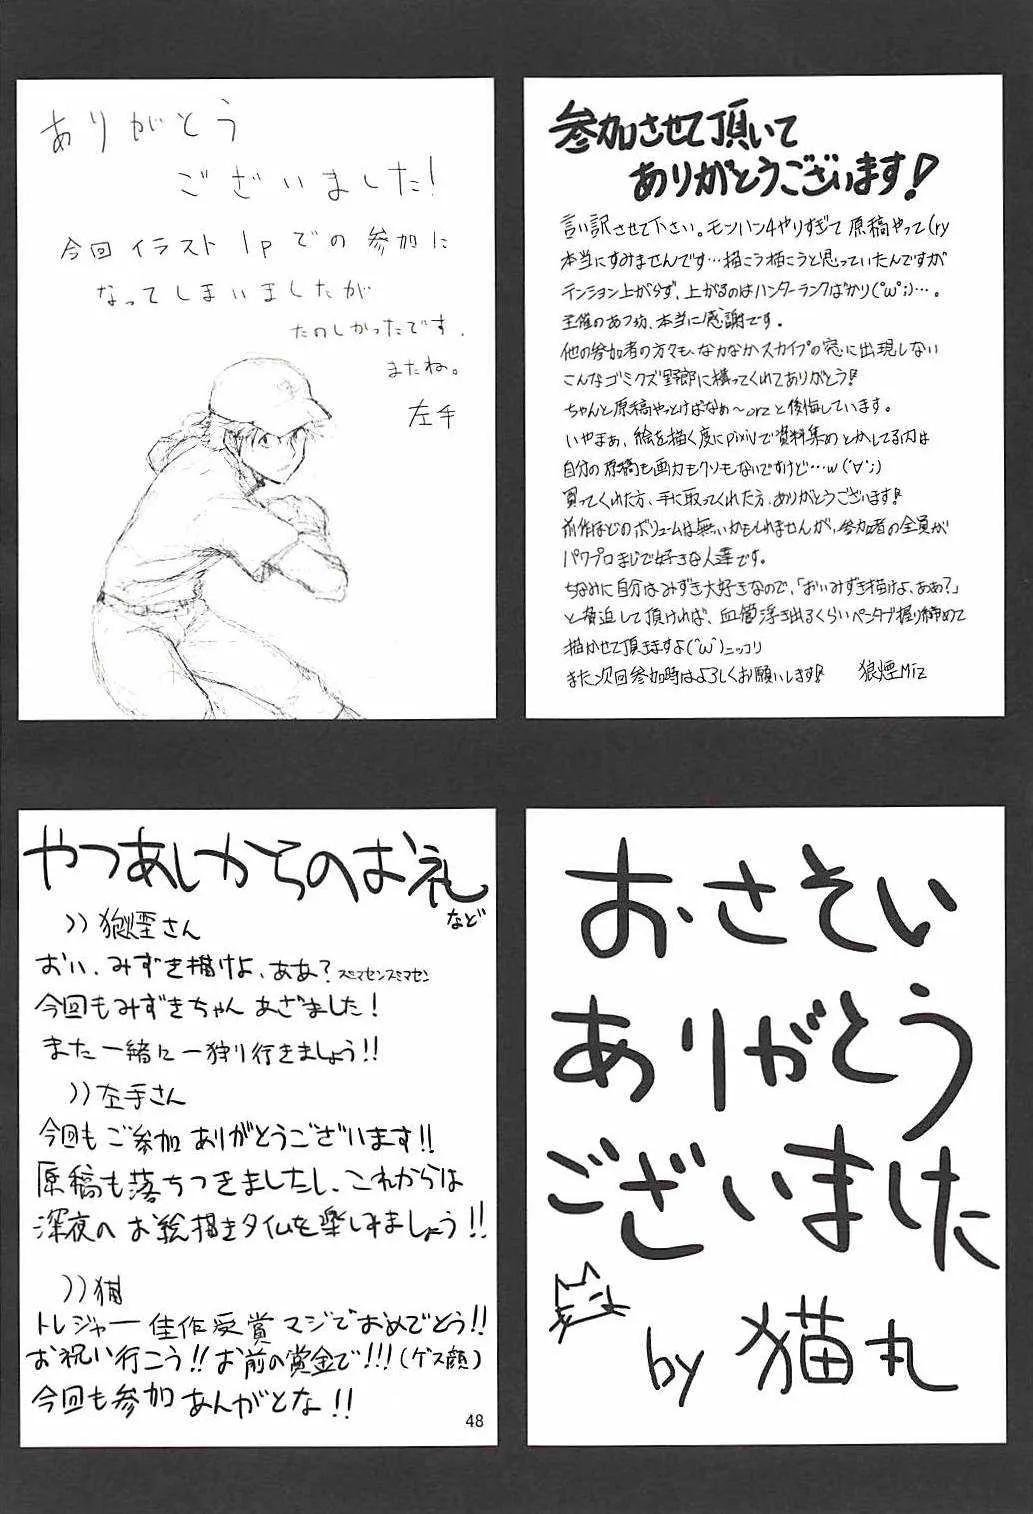 ありがとう
ございました!
今回イラスト1pでの参加に
なってしまいましたが
たのしかったです.
またね。
左手
参加させて頂いて
ありがとうございます!
言い訳させて下さい。モンハン4やりすぎて原稿やって(ry
本当にすみませんです…描こう描こうと思っていたんですが
テンション上がらず、上がるのはハンターランクばかり(°ω°;)…。
主催のあつ坊、本当に感謝です。
他の参加者の方々も、なかなかスカイプの窓に出現しない
こんなゴミクズ野郎に構ってくれてありがとう!
ちゃんと原稿やっとけばなぁ〜orzと後悔しています。
いやまぁ、絵を描く度にpixivで資料集めとかしてる内は
自分の原稿も画力もクソもないですけど…w(´∀`;)
買ってくれた方、手に取ってくれた方、ありがとうございます!
前作ほどのボリュームは無いかもしれませんが、参加者の全員が
パワプロまじで好きな人達です。
ちなみに自分はみずき大好きなので、「おいみずき描けよ、ああ?」
と脅迫して頂ければ、血管浮き出るくらいペンタブ握り締めて
描かせて頂きますよ(^ω^)ニッコリ
また次回参加時はよろしくお願いします!
狼煙Miz
やつあしからのお礼
など
))狼煙さん
おい、みずき描けよ、ああ?スミマセンスミマセン
今回もみずきちゃんあざました!
また一緒に一狩り行きましょう!!
))左手さん
今回もご参加ありがとうございます!!
原稿も落ちつきましたし、これからは
深夜へお絵描きタイムを楽しみましょう!!
))猫
トレジャー佳作受賞マジでおめでとう!!
お祝い行こう!!お前の賞金で!!!(ゲス顔)
今回も参加あんがとな!!
48
おさそい
ありがとう
ございました
by 猫丸